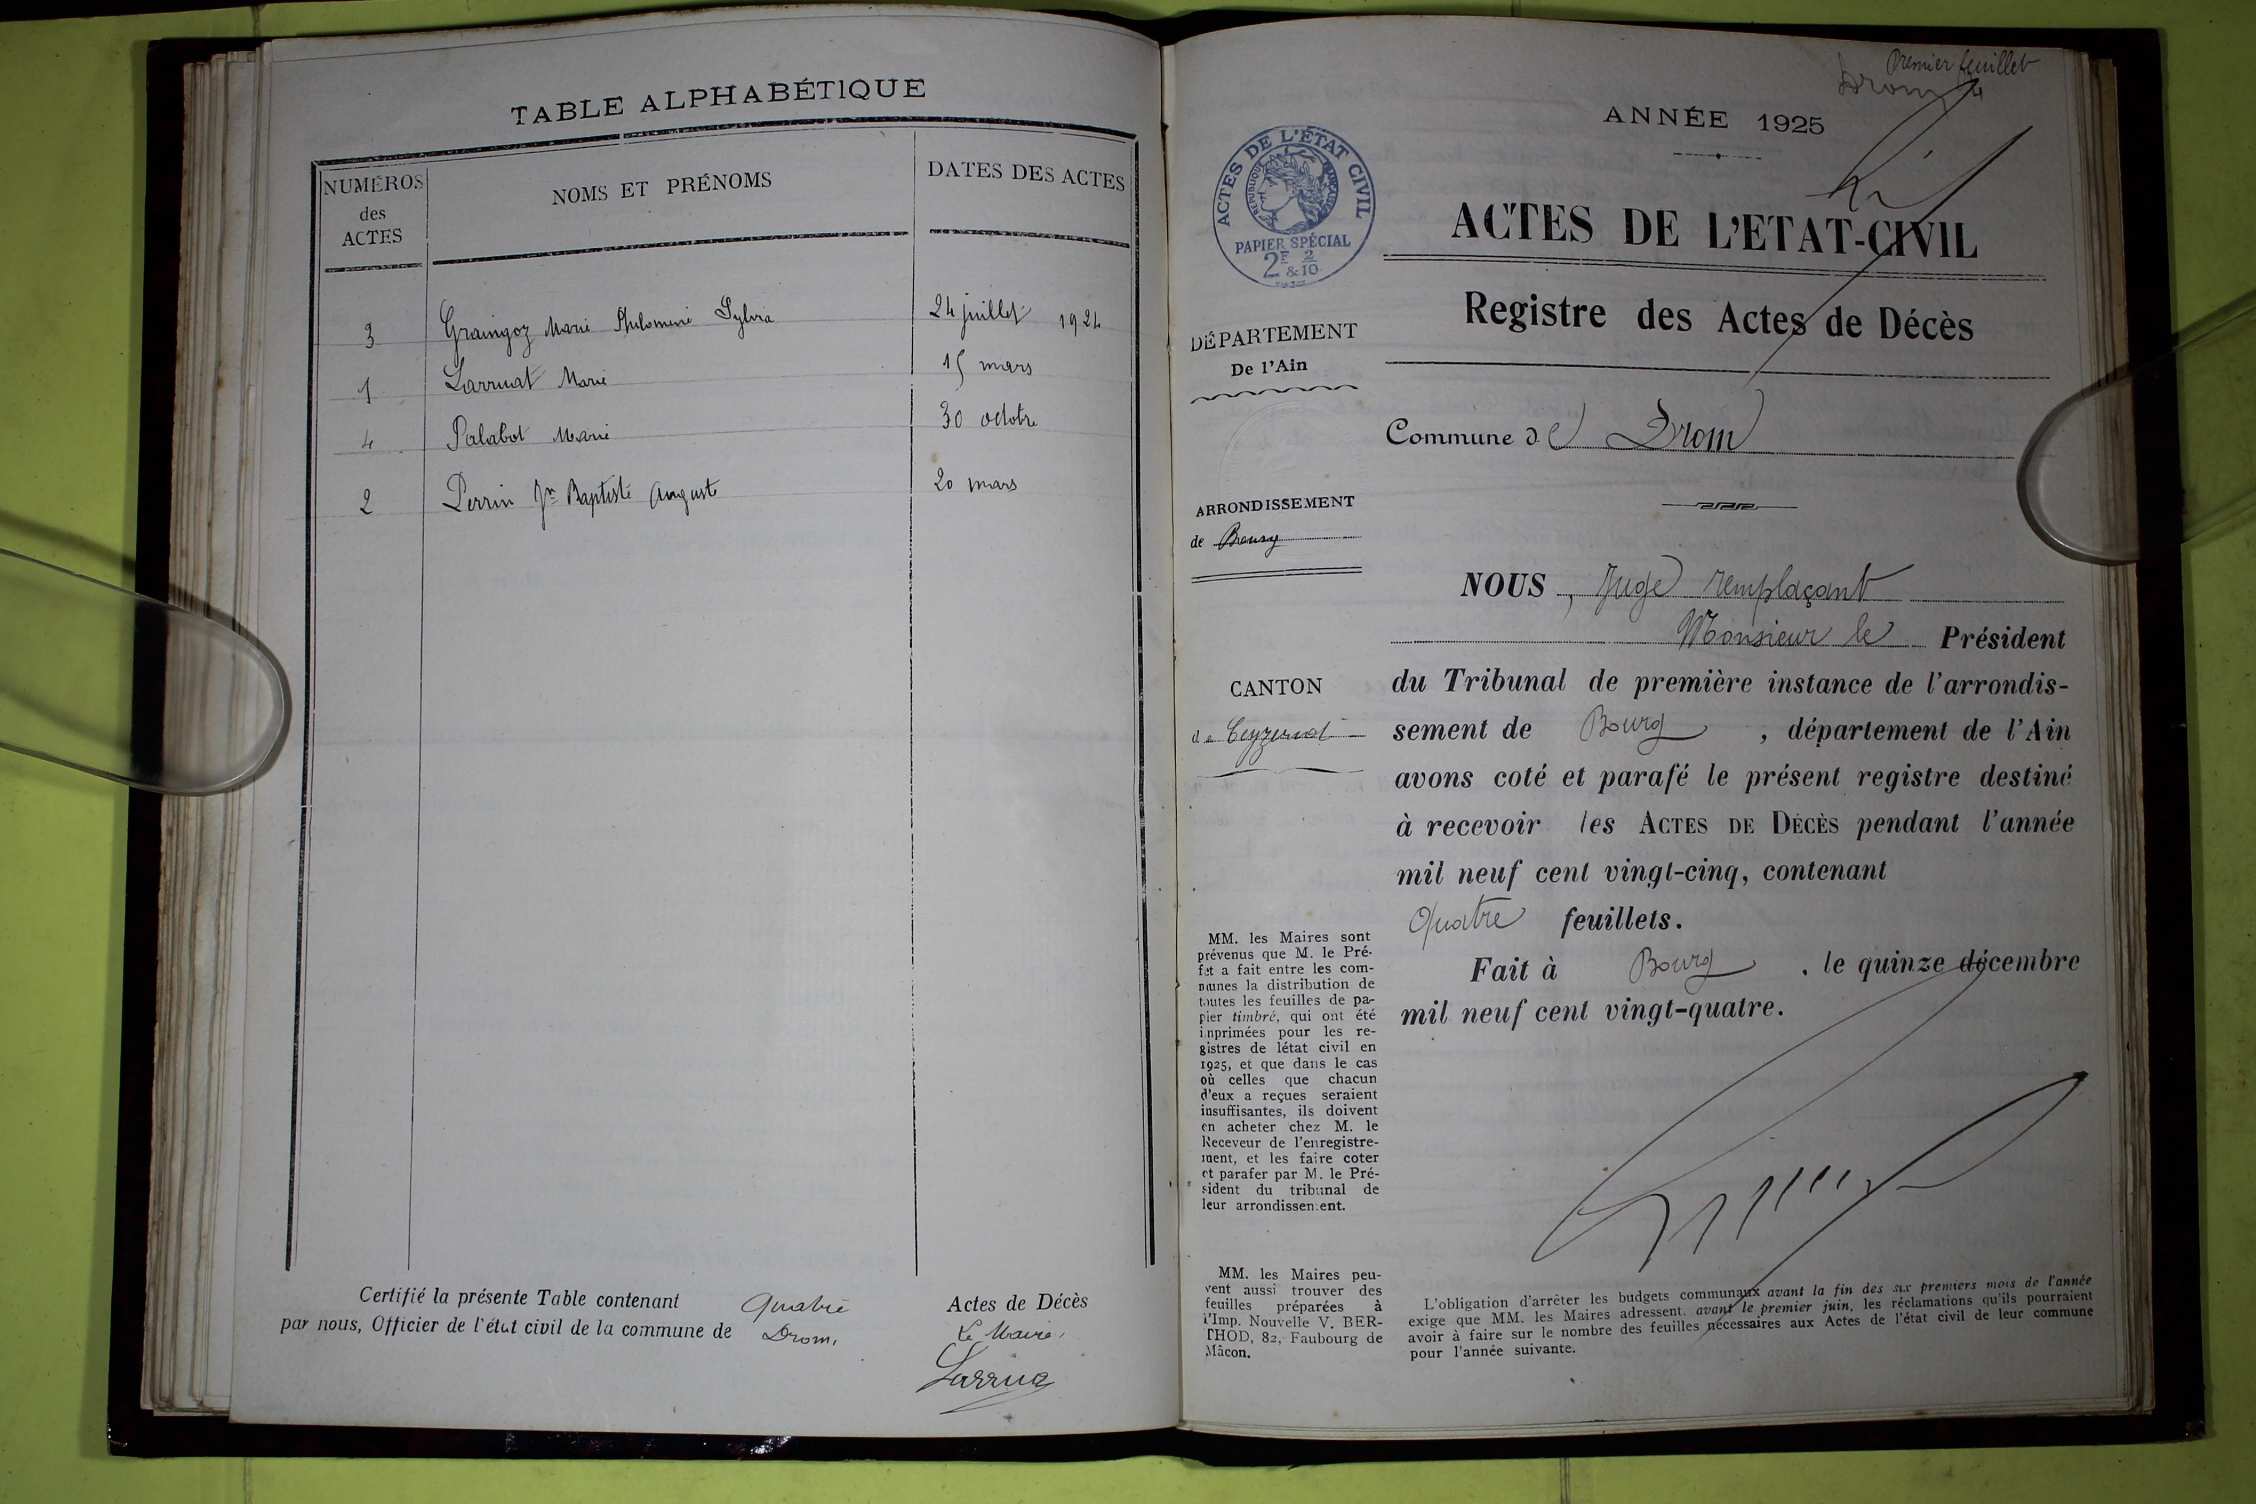 TABLE ALPHABÉTIQUE
NUMÉROS
des
ACTES
NOMS ET PRÉNOMS
DATES DES ACTES
3 Graingoz Marie Philomène Sylvia 24 juillet 1924
1 Marie 15 mars
4 Palabot Marie 30 octobre
2 Perrin Jn Baptiste Auguste 20 mars
Certifié la présente Table contenant quatre Actes de Décès
par nous, Officier de l'état civil de la commune de Drom, Le Maire,
Premier feuillet
Drom
ANNÉE 1925
ACTES DE L'ÉTAT CIVIL
RÉPUBLIQUE FRANÇAISE
PAPIER SPÉCIAL
2F & 2/10
ACTES DE L'ETAT-CIVIL
Registre des Actes de Décès
DÉPARTEMENT
De l'Ain
Commune de Drom
ARRONDISSEMENT
de Bourg
CANTON
de Ceyzériat
NOUS, Juge remplaçant
Monsieur le Président
du Tribunal de première instance de l'arrondis-
sement de Bourg, département de l'Ain
avons coté et parafé le présent registre destiné
à recevoir les ACTES DE DÉCÈS pendant l'année
mil neuf cent vingt-cinq, contenant
Quatre feuillets.
Fait à Bourg, le quinze décembre
mil neuf cent vingt-quatre.
MM. les Maires sont
prévenus que M. le Pré-
fet a fait entre les com-
munes la distribution de
toutes les feuilles de pa-
pier timbré, qui ont été
imprimées pour les re-
gistres de létat civil en
1925, et que dans le cas
où celles que chacun
d'eux a reçues seraient
insuffisantes, ils doivent
en acheter chez M. le
Receveur de l'enregistre-
ment, et les faire coter
et parafer par M. le Pré-
sident du tribunal de
leur arrondissement.
MM. les Maires peu-
vent aussi trouver des
feuilles préparées à
l'Imp. Nouvelle V. BER-
THOD, 82, Faubourg de
Mâcon.
L'obligation d'arrêter les budgets communaux avant la fin des six premiers mois de l'année
exige que MM. les Maires adressent, avant le premier juin, les réclamations qu'ils pourraient
avoir à faire sur le nombre des feuilles nécessaires aux Actes de l'état civil de leur commune
pour l'année suivante.